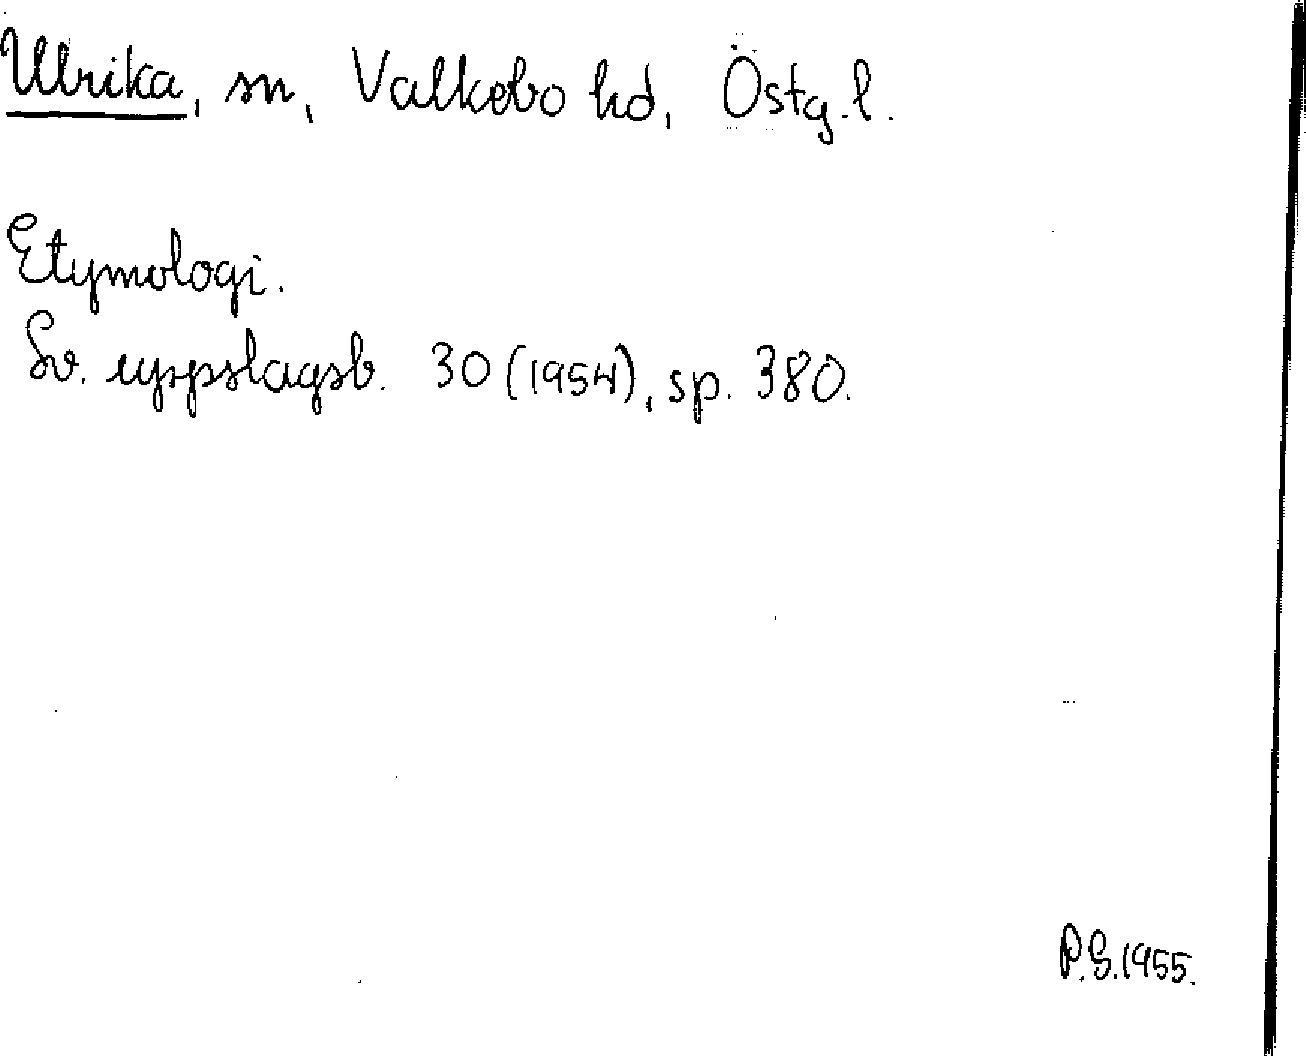 Ulrika, sn, Valkebo hd, Östg.l.
Etymologi.
Sv. uppslagsb. 30 (1954), sp. 380.
P.S. 1955.